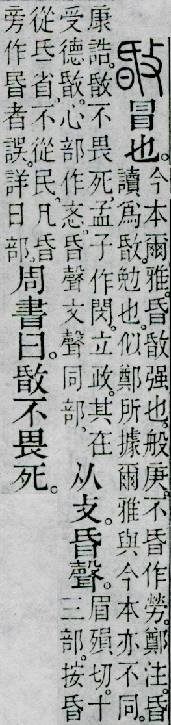 𢽹冒也。
今本爾雅。昏𢽹强也。般庚。不昏作勞。鄭注。昏
讀爲𢽹。勉也。似鄭所據爾雅與今本亦不同。
康誥。𢽹不畏死。孟子作閔。立政。其在
受德𢽹。心部作忞。昏聲文聲同部。
从攴。昏聲。
眉殞切。十
三部。按昏
從氐省。不從民。凡昏
旁作昬者誤。詳日部。
周書曰。𢽹不畏死。